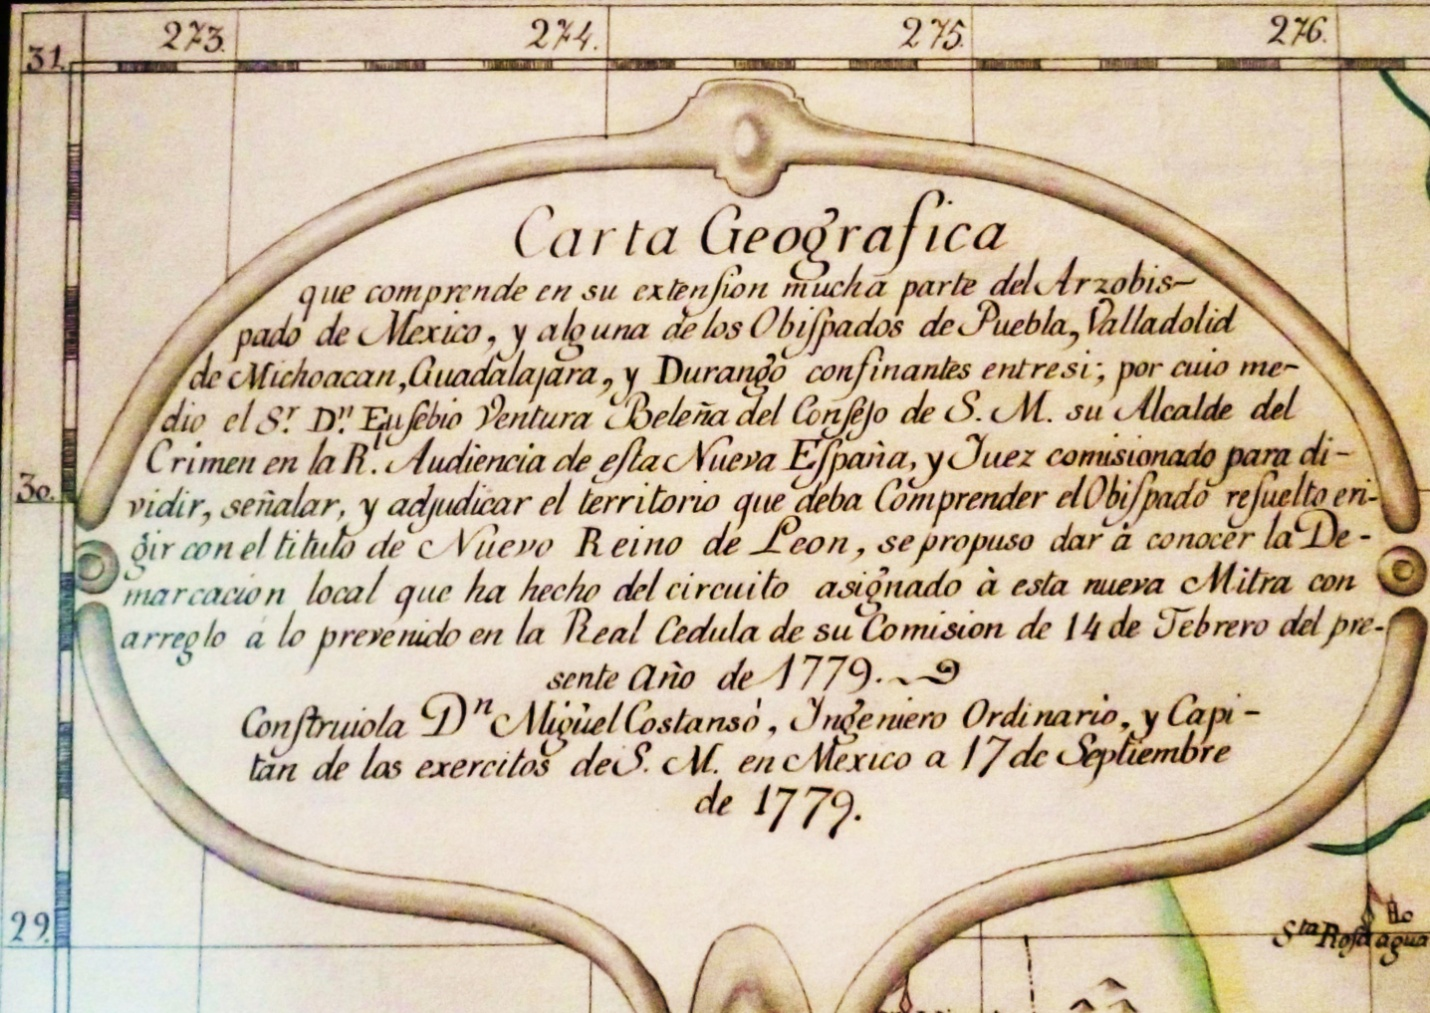 273.
274.
275.
276.
31.
Carta Geografica
que comprende en su extenſion mucha parte del Arzobis-
pado de Mexico, y alguna de los Obiſpados de Puebla, Valladolid
de Michoacan, Guadalajara, y Durango confinantes entresi; por cuio me-
dio el S.r D.n Euſebio Ventura Beleña del Conſejo de S. M. su Alcalde del
Crimen en la R.l Audiencia de eſta Nueva Eſpaña, y Juez comisionado para di-
30.
vidir, señalar, y adjudicar el territorio que deba Comprender el Obiſpado reſuelto eri-
gir con el titulo de Nuevo Reino de Leon, se propuso dar à conocer la De-
marcacion local que ha hecho del circuito asignado à esta nueva Mitra con
arreglo á lo prevenido en la Real Cedula de su Comision de 14 de Febrero del pre-
sente Año de 1779.
Conſtruiola Dn Miguel Costansó, Ingeniero Ordinario, y Capi-
tan de los exercitos de S. M. en Mexico a 17 de Septiembre
de 1779.
29.
Sta Roſa
agua